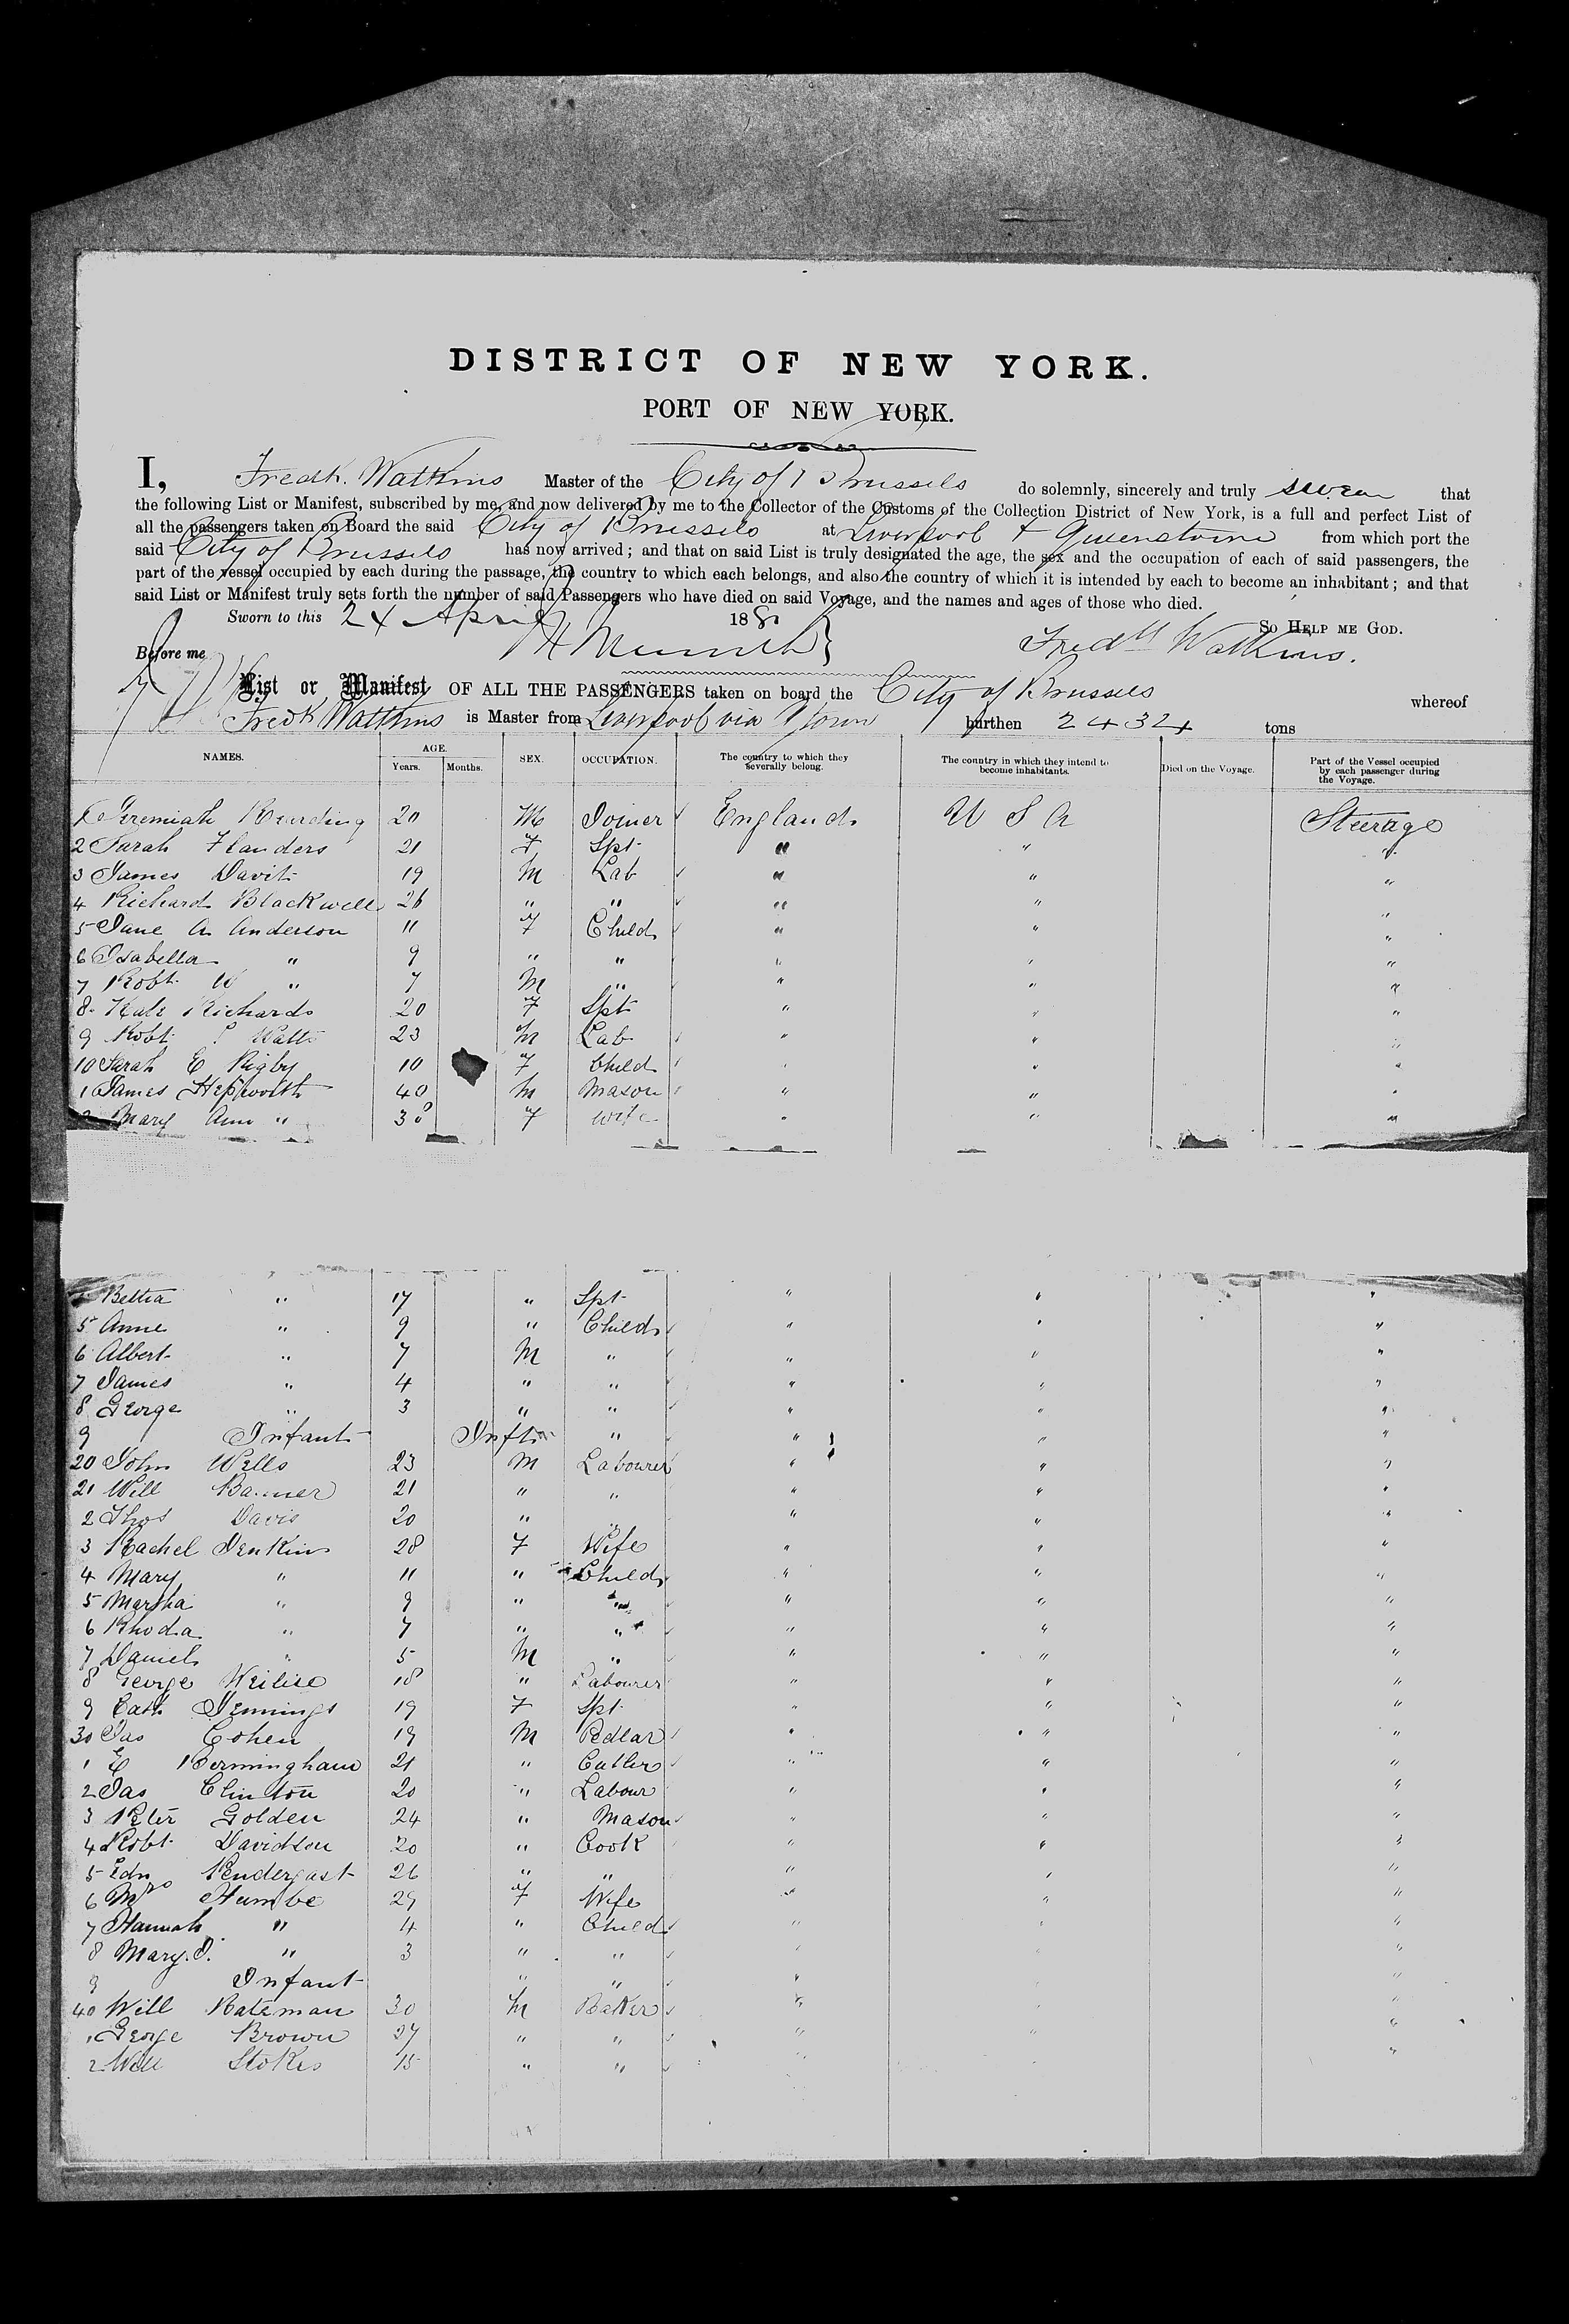 DISTRICT OF NEW YORK.
PORT OF NEW YORK.
I, Fredk. Watkins Master of the City of Brussels do solemnly, sincerely and truly swear that
the following List or Manifest, subscribed by me, and now delivered by me to the Collector of the Customs of the Collection District of New York, is a full and perfect List of
all the passengers taken on Board the said City of Brussels at Liverpool & Queenstown from which port the
said City of Brussels has now arrived; and that on said List is truly designated the age, the sex and the occupation of each of said passengers, the
part of the vessel occupied by each during the passage, the country to which each belongs, and also the country of which it is intended by each to become an inhabitant; and that
said List or Manifest truly sets forth the number of said Passengers who have died on said Voyage, and the names and ages of those who died.
Sworn to this 24 April 188 So Help me God.
Before me Fredk Watkins.
List or Manifest OF ALL THE PASSENGERS taken on board the City of Brussels whereof
Fredk Watkins is Master from Liverpool via Qtown burthen 2434 tons
NAMES. AGE. Years. Months. SEX. OCCUPATION. The country to which they severally belong. The country in which they intend to become inhabitants. Died on the Voyage. Part of the Vessel occupied by each passenger during the Voyage.
1 Jeremiah 20 M Joiner England U S A Steerage
2 Sarah Flanders 21 F Spt " " "
3 James Davis 19 M Lab " " "
4 Richard Blackwell 26 " " " " "
5 Jane A Anderson 11 F Child " " "
6 Isabella " 9 " " " " "
7 Robt W " 7 M " " " "
8 Kate Richards 20 F Spt " " "
9 Robt Watts 23 M Lab " " "
10 Sarah E Rigby 10 F Child " " "
1 James Hepworth 40 M Mason " " "
2 Mary Ann " 38 F Wife " " "
" 17 " Spt " " "
5 Anne " 9 " Child " " "
6 Albert " 7 M " " " "
7 James " 4 " " " " "
8 George " 3 " " " " "
9 Infant Inft " " " "
20 John Wells 23 M Labourer " " "
21 Will 21 " " " " "
2 Thos Davis 20 " " " " "
3 Rachel Jenkins 28 F Wife " " "
4 Mary " 11 " Child " " "
5 Martha " 9 " " " " "
6 Rhoda " 7 " " " " "
7 Daniel " 5 M " " " "
8 George 18 " Labourer " " "
9 Cath Jennings 19 F Spt " " "
30 Jas Cohen 19 M Pedlar " " "
1 E Bermingham 21 " Cutler " " "
2 Jas Clinton 20 " Labour " " "
3 Peter Golden 24 " Mason " " "
4 Robt Davidson 20 " Cook " " "
5 Edn Pendergast 26 " " " " "
6 Mrs Humbe 29 F Wife " " "
7 Hannah " 4 " Child " " "
8 Mary J. " 3 " " " " "
9 Infant " " " " "
40 Will Bateman 30 M Baker " " "
1 George Brown 27 " " " " "
2 Will Stokes 15 " " " "